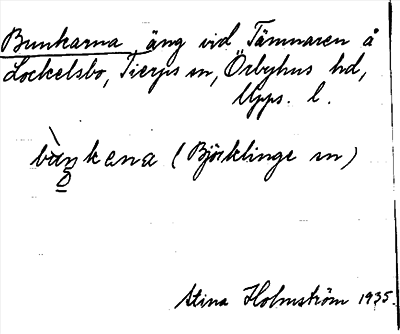 Bunkarna, äng vid Tämnaren å
Lockelsbo, Tierps sn, Örbyhus hd,
Upps. l.
bàŋkana (Björklinge sn)
Stina Holmström 1935.